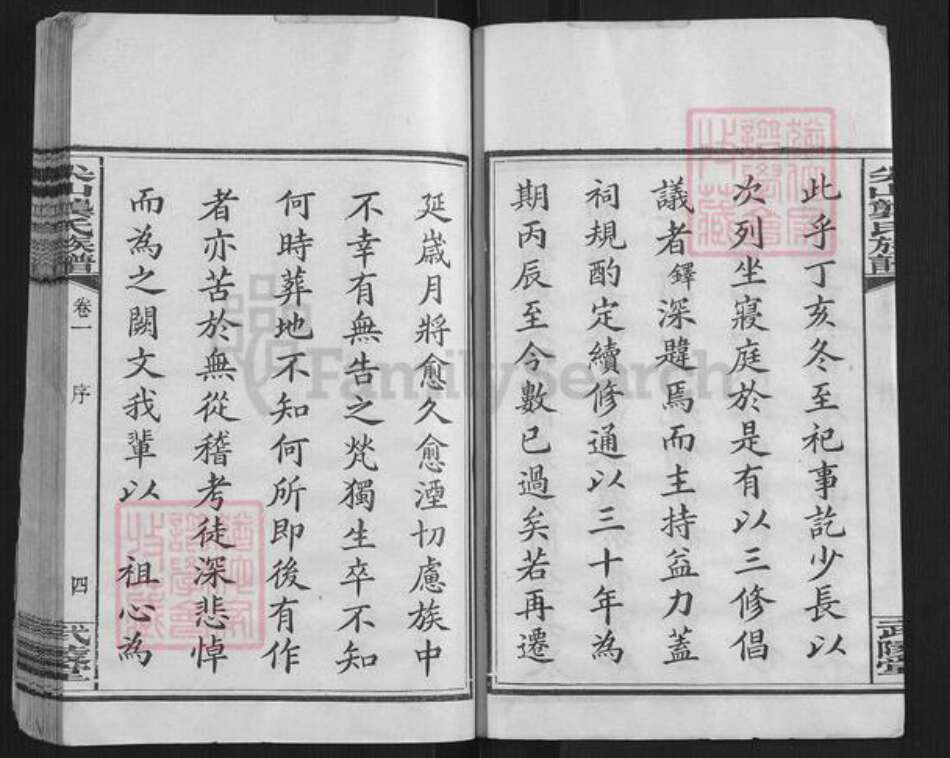 此乎丁亥冬至祀事訖少長以
次列坐寢庭於是有以三修倡
議者鐸深韙焉而主持益力蓋
祠規酌定續修通以三十年為
期丙辰至今數已過矣若再遷
延歲月將愈久愈湮切慮族中
不幸有無告之煢獨生卒不知
何時葬地不知何所即後有作
者亦苦於無從稽考徒深悲悼
而為之闕文我輩以祖心為
尖山龔氏族譜
卷一
序
四
武陵堂
FamilySearch